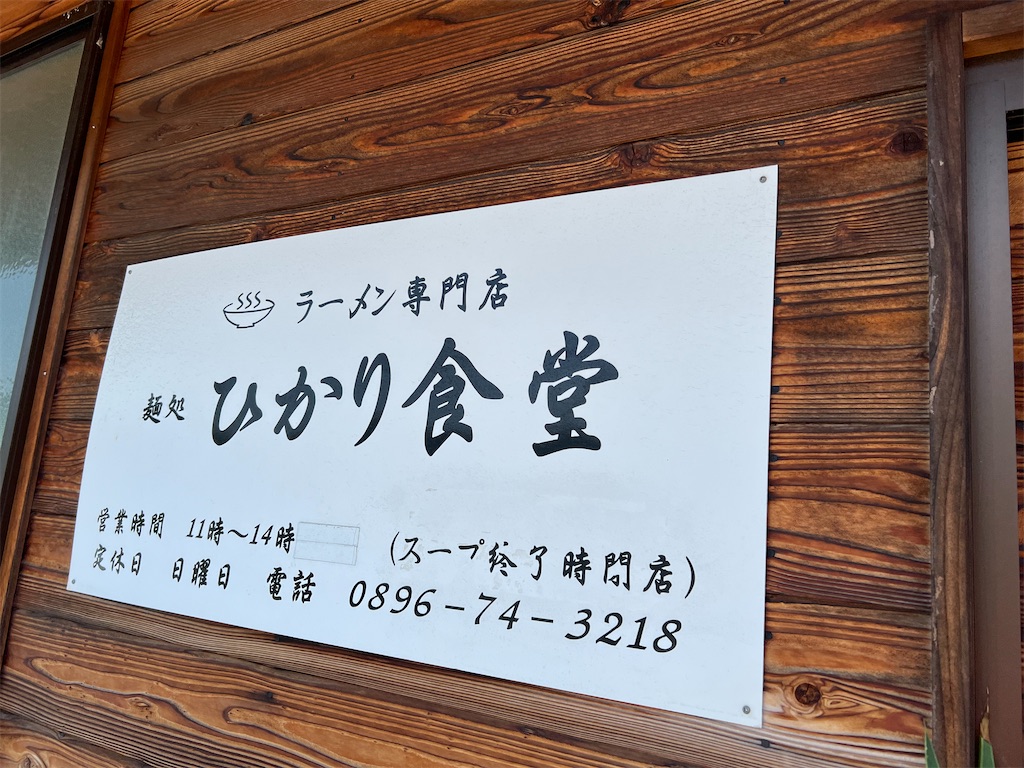 ラーメン専門店
麺処 ひかり食堂
営業時間 11時～14時 (スープ終了時閉店)
定休日 日曜日 電話 0896-74-3218